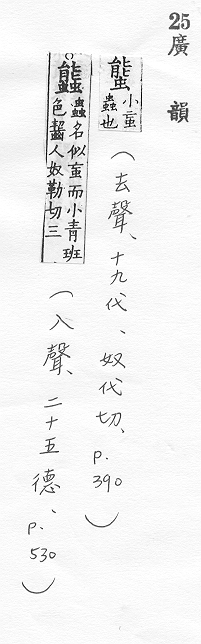 25 廣韻
螚 小䖟蟲也（去聲、十九代、奴代切、p.390）
䘅 蟲名似䖟而小青班色齧人奴勒切三（入聲、二十五德、p.530）